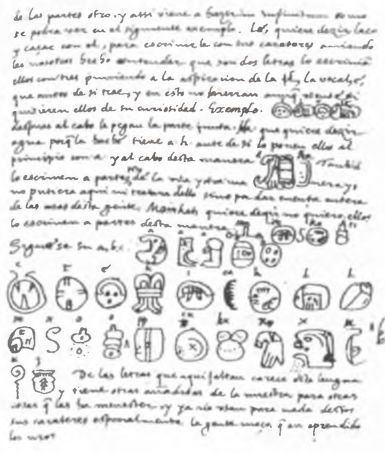 de las partes otro. y assi viene a hazer in infinitum como
se podra ver en el siguiente exemplo. Lé, quiere dezir laço
y caçar con el, para escrivirle con sus carateres aviendo
les nosotros hecho entender que son dos letras lo escrivian
ellos con tres puniendo a la aspiracion de la l, la vocal e,
que antes de si trae, y en esto no hierran aunq
quisieren ellos de su curiosidad. Exemplo.
despues al cabo le pegan la parte junta. Ha. que quiere dezir
agua porq la hache tiene a. h. ante de si lo ponen ellos al
principio con a y al cabo desta manera Tambie
lo escriven a partes de la una y otra ma nera yo
no pusiera aqui ni tratara dello sino por dar cuenta entera
de las cosas desta gente. Mainkati quiere dezir no quiero, ellos
lo escriven a partes desta manera
Siguese su a. b. c.
De las letras que aqui faltan carece esta lengua
y tiene otras añadidas de la nuestra para otras
cosas q las ha menester, y ya no usan para nada destos
sus carateres especialmente la gente moça q an aprendido
los nros